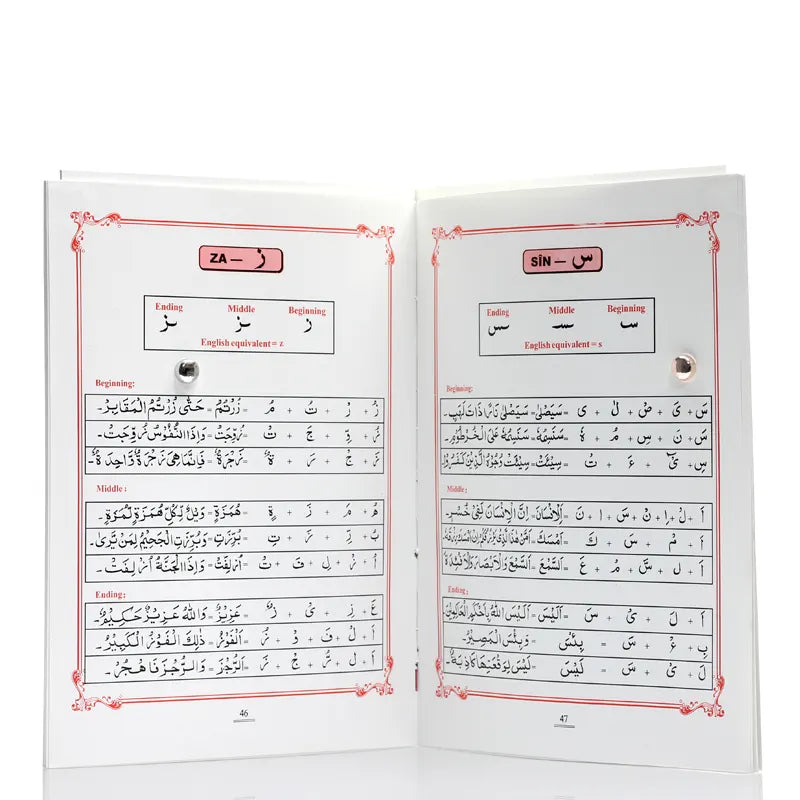 ZA — ز
Ending Middle Beginning
ـز ـز ز
English equivalent = z
Beginning:
زُ + رْ + تُ + مُ = زُرْتُمُ = حَتّٰى زُرْتُمُ الْمَقَابِرَ۔
زُ + وِّ + جَ + تْ = زُوِّجَتْ = وَاِذَا النُّفُوْسُ زُوِّجَتْ۔
زَ + جْ + رَ + ةٌ = زَجْرَةٌ = فَاِنَّمَا هِىَ زَجْرَةٌ وَّاحِدَةٌ۔
Middle :
هُ + مَ + زَ + ةٍ = هُمَزَةٍ = وَيْلٌ لِّكُلِّ هُمَزَةٍ لُّمَزَةٍ۔
بُ + رِّ + زَ + تِ = بُرِّزَتِ = وَبُرِّزَتِ الْجَحِيْمُ لِمَنْ يَّرٰى۔
اُ + زْ + لِ + فَ + تْ = اُزْلِفَتْ = وَاِذَا الْجَنَّةُ اُزْلِفَتْ۔
Ending :
عَ + زِ + يْ + زٌ = عَزِيْزٌ = وَاللّٰهُ عَزِيْزٌ حَكِيْمٌ۔
اَ + لْ + فَ + وْ + زُ = اَلْفَوْزُ = ذٰلِكَ الْفَوْزُ الْكَبِيْرُ۔
اَ + ل + رُّ + جْ + زَ = الرُّجْزَ = وَالرُّجْزَ فَاهْجُرْ۔
46
SÎN — س
Ending Middle Beginning
ـس ـسـ سـ
English equivalent = s
Beginning:
سَ + يَ + صْ + لٰ + ى = سَيَصْلٰى = سَيَصْلٰى نَارًا ذَاتَ لَهَبٍ۔
سَ + نَ + سِ + مُ + هٗ = سَنَسِمُهٗ = سَنَسِمُهٗ عَلَى الْخُرْطُوْمِ۔
Middle :
اَ + لْ + اِ + نْ + سَ + ا + نَ = اَلْاِنْسَانَ = اِنَّ الْاِنْسَانَ لَفِىْ خُسْرٍ۔
Ending :
اَ + لَ + يْ + سَ = اَلَيْسَ = اَلَيْسَ اللّٰهُ بِاَحْكَمِ الْحَاكِمِيْنَ۔
بِ + ئْ + سَ = بِئْسَ = وَبِئْسَ الْمَصِيْرُ۔
لَ + يْ + سَ = لَيْسَ = لَيْسَ لِوَقْعَتِهَا كَاذِبَةٌ۔
47